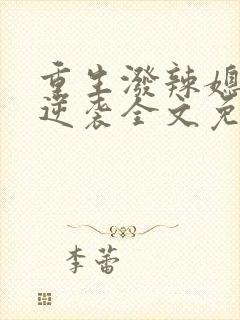 重生潑辣媳
逆袭全文免
李蕾